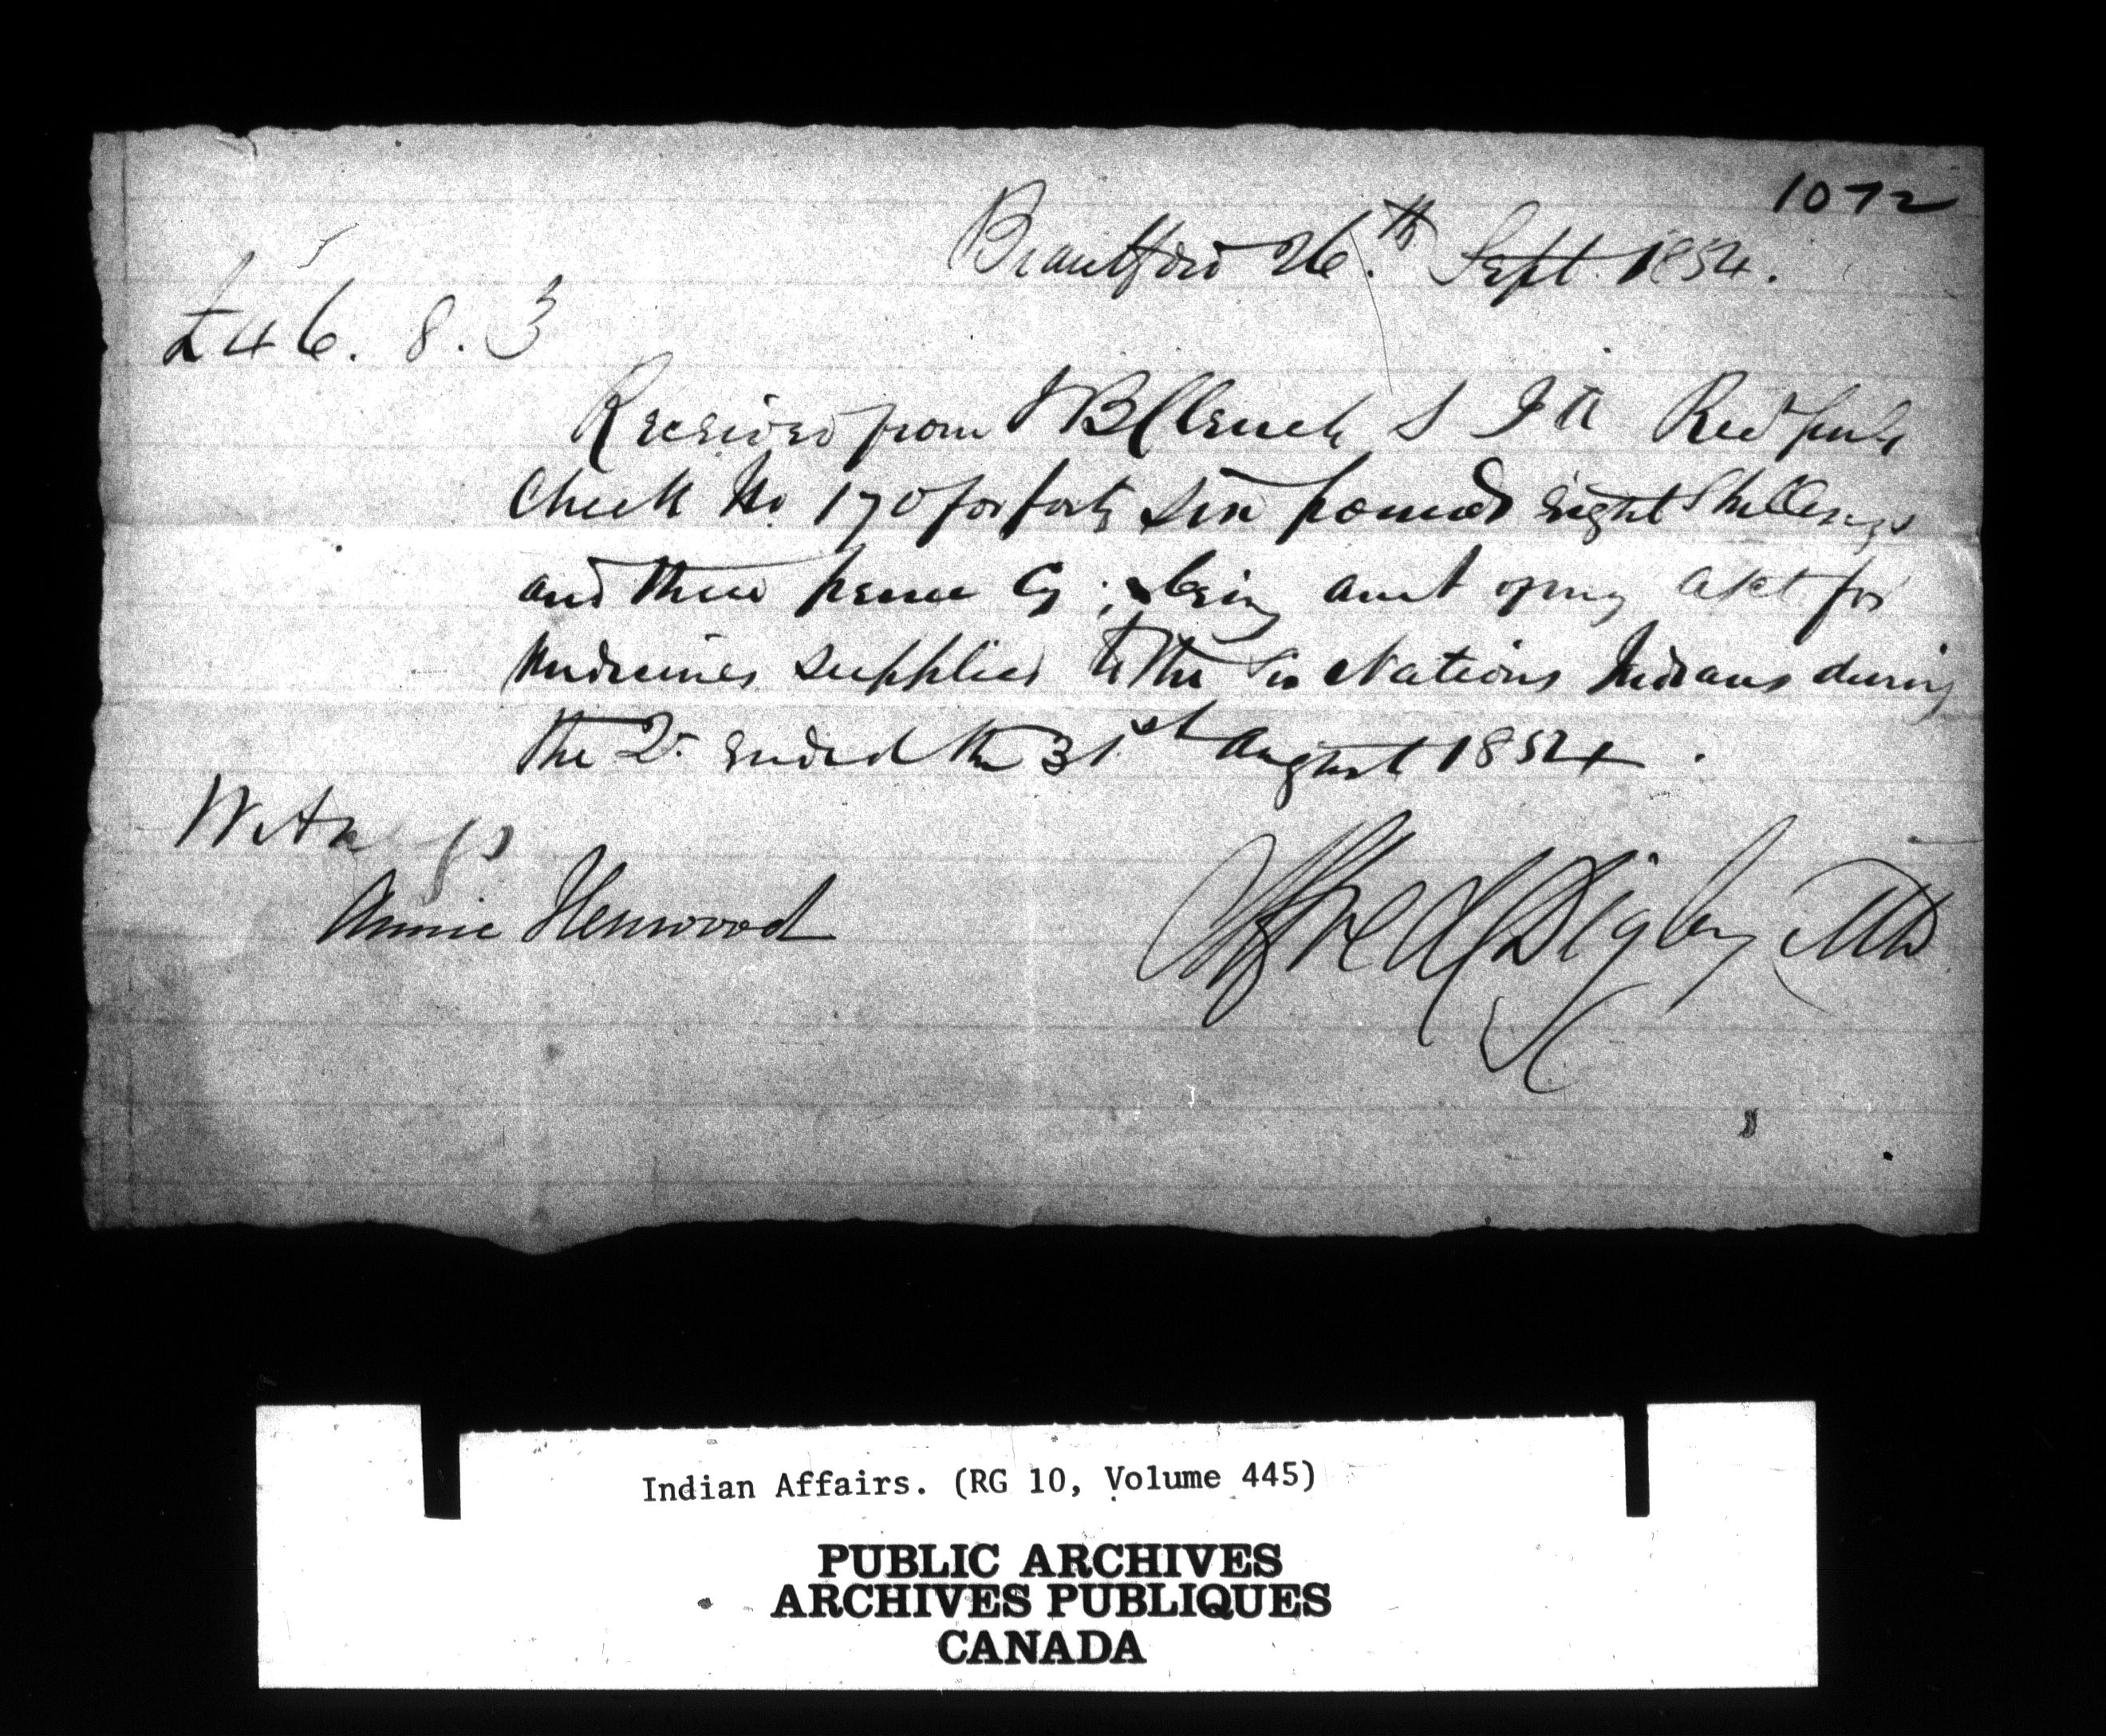 1072
Brantford 26.th Sept. 1854.
£46. 8. 3
Received from J B Clench S I A
Check No. 170 for forty six pounds eight Shillings
and three pence Cy; being amt of my acct. for
Medicines supplied to the Six Nations Indians during
the Qr ended the 31st August 1854.
Witness
Annie Henwood
Alfred Digby MD
Indian Affairs. (RG 10, Volume 445)
PUBLIC ARCHIVES
ARCHIVES PUBLIQUES
CANADA